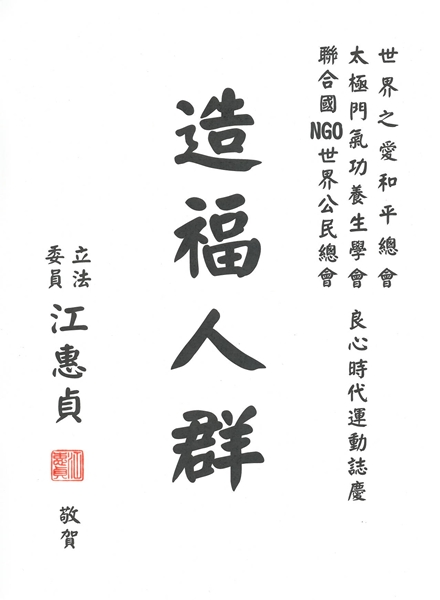 世界之愛和平總會
太極門氣功養生學會
聯合國NGO世界公民總會
良心時代運動誌慶
造福人群
立法委員
江惠貞
江惠貞
敬賀